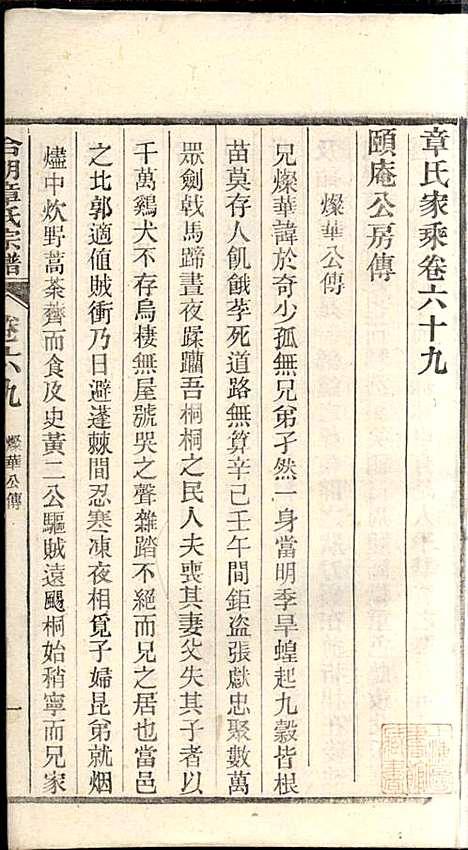 章氏家乘卷六十九
頤庵公房傳
燦華公傳
兄燦華諱於奇少孤無兄弟孑然一身當明季旱蝗起九穀皆根
苗莫存人飢餓莩死道路無算辛巳壬午間鉅盜張獻忠聚數萬
眾劍戟馬蹄晝夜蹂躪吾桐桐之民人夫喪其妻父失其子者以
千萬鷄犬不存烏棲無屋號哭之聲雜踏不絕而兄之居也當邑
之北郭適値賊衝乃日避蓬棘間忍寒凍夜相覓子婦昆弟就烟
燼中炊野蒿荼薺而食及史黃二公驅賊遠颺桐始稍寧而兄家
章氏宗譜
卷六九
燦華公傳
一